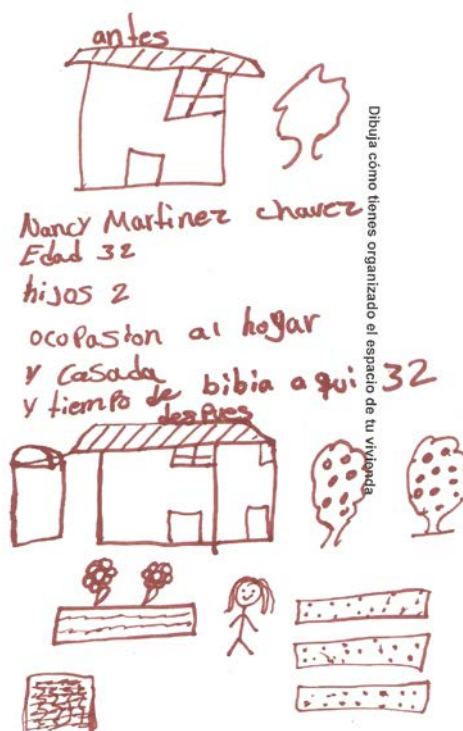 antes
Dibuja cómo tienes organizado el espacio de tu vivienda
Nancy Martinez chavez
Edad 32
hijos 2
ocopasion al hogar
y casada
y tiempo de bibia aqui 32
despues